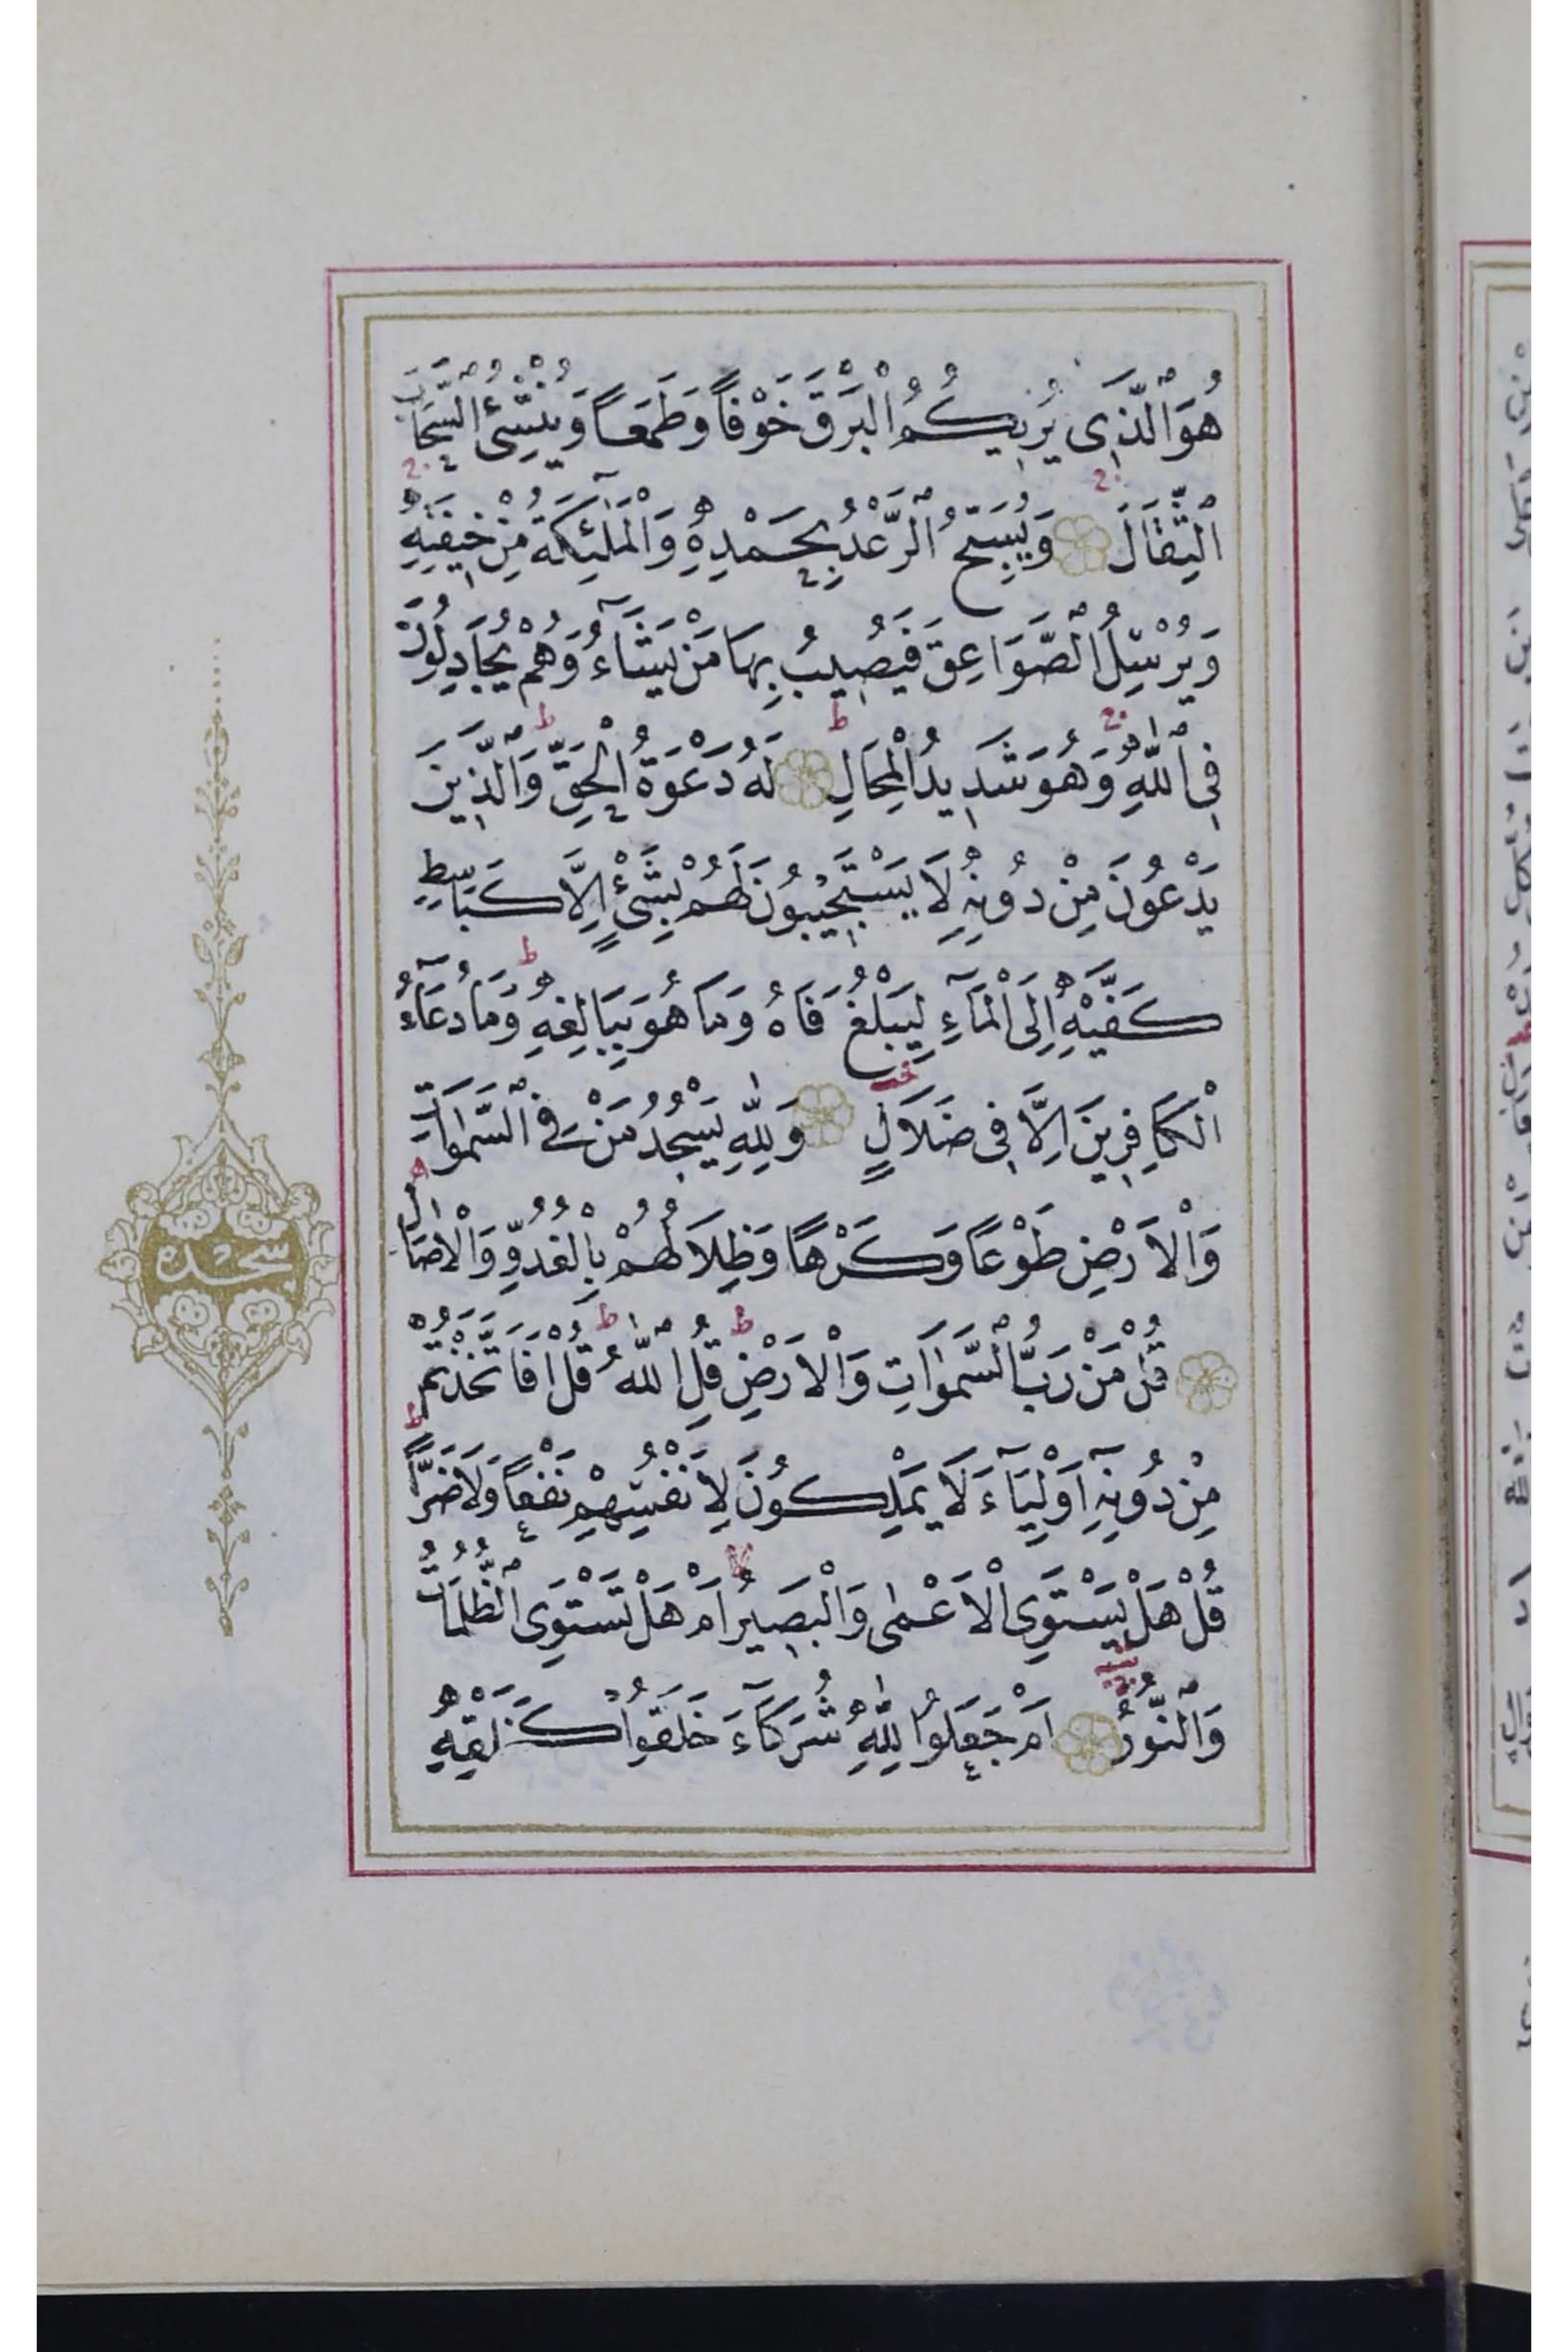 هُوَ الَّذِى يُرِيكُمُ الْبَرْقَ خَوْفًا وَطَمَعًا وَيُنْشِئُ السَّحَابَ
الثِّقَالَ وَيُسَبِّحُ الرَّعْدُ بِحَمْدِهِ وَالْمَلٰٓئِكَةُ مِنْ خِيفَتِهِ
وَيُرْسِلُ الصَّوَاعِقَ فَيُصِيبُ بِهَا مَنْ يَشَآءُ وَهُمْ يُجَادِلُونَ
فِى اللّٰهِ وَهُوَ شَدِيدُ الْمِحَالِ لَهُ دَعْوَةُ الْحَقِّ وَالَّذِينَ
يَدْعُونَ مِنْ دُونِهِ لَا يَسْتَجِيبُونَ لَهُمْ بِشَىْءٍ اِلَّا كَبَاسِطِ
كَفَّيْهِ اِلَى الْمَآءِ لِيَبْلُغَ فَاهُ وَمَا هُوَ بِبَالِغِهِ وَمَا دُعَآءُ
الْكَافِرِينَ اِلَّا فِى ضَلَالٍ وَلِلّٰهِ يَسْجُدُ مَنْ فِى السَّمٰوَاتِ
وَالْاَرْضِ طَوْعًا وَكَرْهًا وَظِلَالُهُمْ بِالْغُدُوِّ وَالْاٰصَالِ
سجده
قُلْ مَنْ رَبُّ السَّمٰوَاتِ وَالْاَرْضِ قُلِ اللّٰهُ قُلْ اَفَاتَّخَذْتُمْ
مِنْ دُونِهِٓ اَوْلِيَآءَ لَا يَمْلِكُونَ لِاَنْفُسِهِمْ نَفْعًا وَلَا ضَرًّا
قُلْ هَلْ يَسْتَوِى الْاَعْمٰى وَالْبَصِيرُ اَمْ هَلْ تَسْتَوِى الظُّلُمَاتُ
وَالنُّورُ اَمْ جَعَلُوا لِلّٰهِ شُرَكَآءَ خَلَقُوا كَخَلْقِهِ